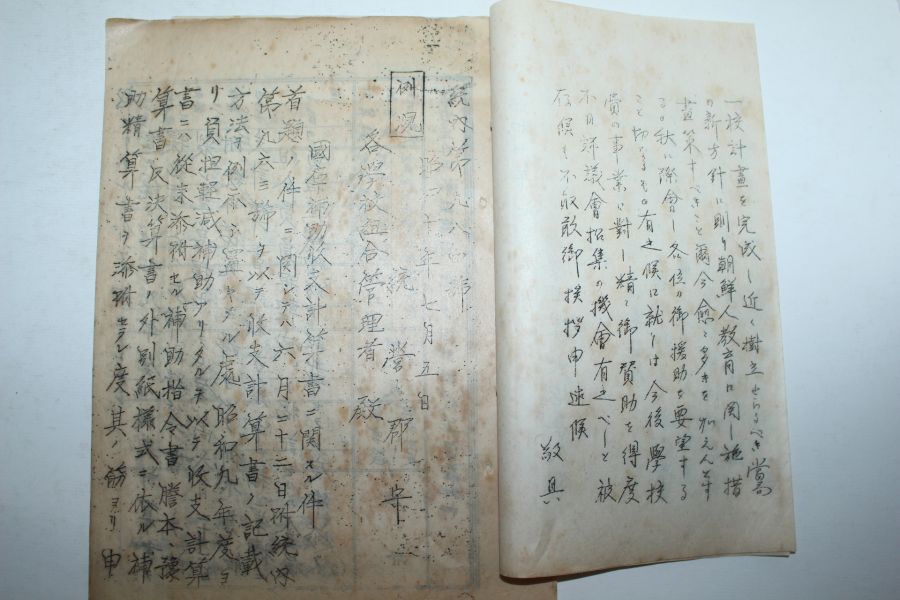 一校計畫を完成し近く樹立せらるべき當局
の新方針に則り朝鮮人教育に関し施措
畫策すべきこと爾今愈々多きを加えんとす
るの秋に際會し各位の御援助を要望する
こと切なるもの有之候に就ては今後學校
費の事業に對し精々御賛助を得度
不日評議會招集の機會有之べしと被
存候も不取敢御挨拶申述候
敬具
統内第九八四號
昭和十年七月五日
例規
統營郡守
各學校組合管理者殿
國庫補助收支計算書ニ関スル件
首題ノ件ニ関シテハ六月二十二日附統内
第九六三號ヲ以テ收支計算書ノ記載
方法ヲ例示シ置キタル處昭和九年度ヨ
リ負担軽減補助アリタルヲ以テ收支計算
書ニハ從来添附セル補助指令書謄本豫
算書及決算書ノ外別紙様式ニ依ル補
助精算書ヲ添附セラレ度其ノ筋ヨリ申